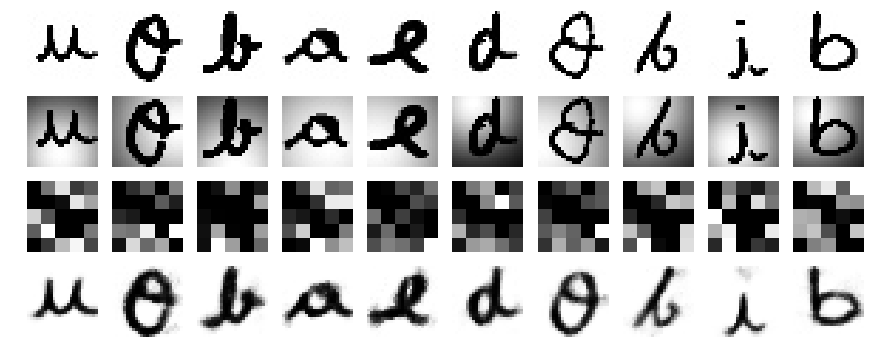 u O b a e d O b j b
u O b a e d O b j b
u O b a e d O b i b